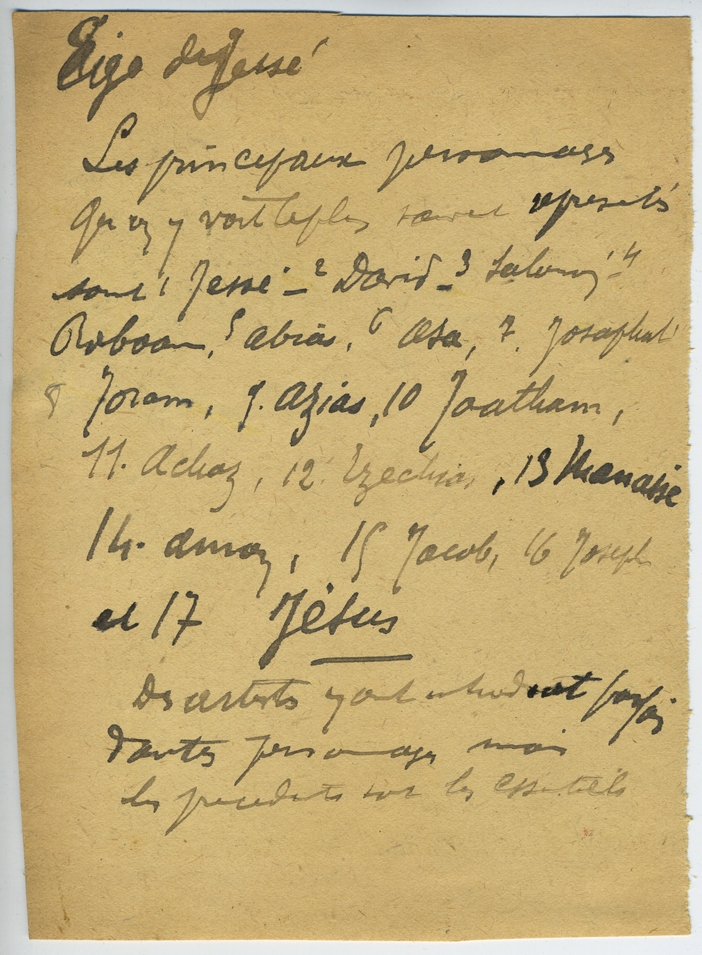 Tige de Jessé
Les principaux personnages
qu'on y voit le plus souvent représentés
sont 1 Jessé - 2 David - 3 Salomon - 4
Roboam, 5 Abias, 6 Asa, 7. Josaphat
8 Joram, 9. Azias, 10 Joatham,
11. Achaz, 12 Ezechias, 13 Manassé
14. Amon, 15 Jacob, 16 Joseph
et 17 Jésus
Des artistes y ont introduit parfois
d'autres personnages mais
les précédents sont les essentiels